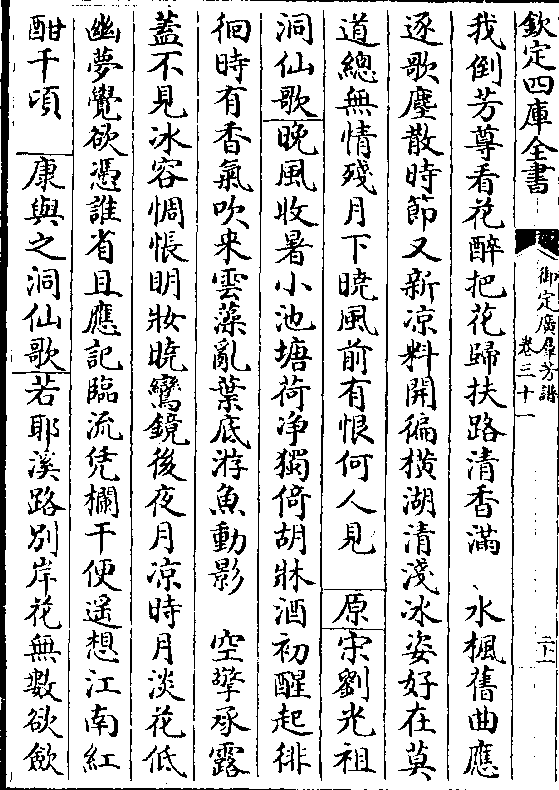 欽定四庫全書
御定廣羣芳譜
卷三十一
我倒芳尊看花醉把花歸扶路清香滿　水楓舊曲應
逐歌塵散時節又新凉料開徧橫湖清淺冰姿好在莫
道總無情殘月下曉風前有恨何人見　原宋劉光祖
洞仙歌晚風收暑小池塘荷淨獨倚胡牀酒初醒起徘
徊時有香氣吹来雲藻亂葉底游魚動影　空擎承露
蓋不見冰容惆悵明妝晚鸞鏡後夜月凉時月淡花低
幽夢覺欲憑誰省且應記臨流凭欄干便遥想江南紅
酣千頃　康與之洞仙歌若耶溪路別岸花無數欲斂